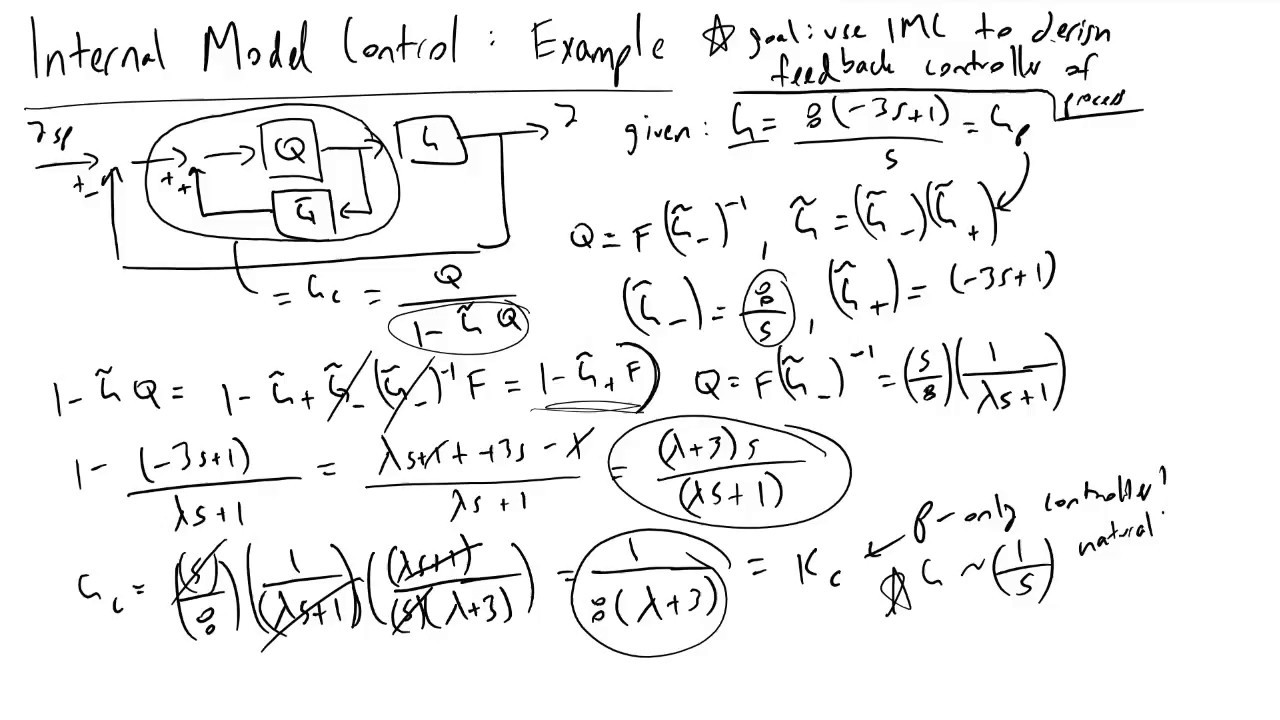 Internal Model Control : Example
☆ goal: use IMC to design
feedback controller of
process
ysp
+
-
+
+
Q
G
y
G̃
given: G = 8(-3s+1)/s = Gp
= Gc = Q/(1 - G̃ Q)
Q = F(G̃-)^-1, G̃ = (G̃-)(G̃+)
(G̃-) = 8/s, (G̃+) = (-3s+1)
1 - G̃ Q = 1 - G̃+ G̃- (G̃-)^-1 F = 1 - G̃+ F
Q = F(G̃-)^-1 = (s/8)(1/(λs+1))
1 - (-3s+1)/(λs+1) = (λs+1 + +3s - 1)/(λs+1) = (λ+3)s/(λs+1)
Gc = ((s)/8)(1/(λs+1))((λs+1)/((s)(λ+3))) = 1/(8(λ+3)) = Kc
P-only controller!
☆ G ~ (1/s) natural